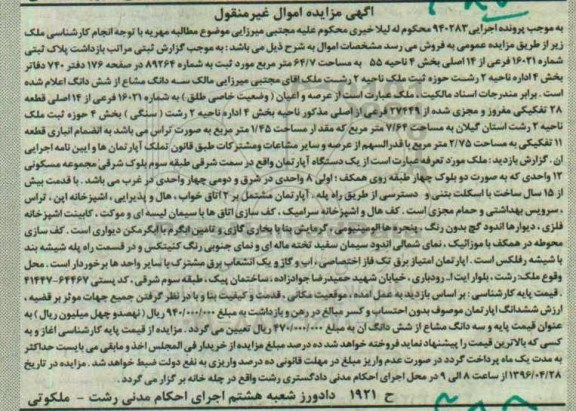 آگهی مزایده اموال غیرمنقول
به موجب پرونده اجرایی ۹۴۰۲۸۳ محکوم له لیلا خیری محکوم علیه مجتبی میرزایی موضوع مطالبه مهریه با توجه انجام کارشناسی ملک
زیر از طریق مزایده عمومی به فروش می رسد مشخصات اموال به شرح ذیل می باشد : به موجب گزارش ثبتی مراتب بازداشت پلاک ثبتی
شماره ۱۶۰۲۱ فرعی از ۱۴ اصلی بخش ۴ ناحیه ۵۵ به مساحت ۶۴/۷ متر مربع مورد ثبت به شماره ۸۹۲۶۴ در صفحه ۱۷۶ دفتر ۷۴۰ دفاتر
بخش ۴ اداره ناحیه ۲ رشت حوزه ثبت ملک ناحیه ۲ رشت ملک اقای مجتبی میرزایی مالک سه دانگ مشاع از شش دانگ اعلام شده
است . برابر مندرجات اسناد مالکیت ، ملک عبارت است از عرصه و اعیان ( وضعیت خاصی طلق ) به شماره ۱۶۰۲۱ فرعی از ۱۴ اصلی قطعه
۲۸ تفکیکی مفروز و مجزی شده از ۲۷۴۲۹ فرعی از اصلی مذکور ناحیه بخش ۴ اداره ناحیه ۲ رشت ( سنگی ) بخش ۴ حوزه ثبت ملک
ناحیه ۲ رشت استان گیلان به مساحت ۷/۶۴ متر مربع که مقدار مساحت ۱/۴۵ متر مربع به صورت تراس می باشد به انضمام انباری قطعه
۱۱ تفکیکی به مساحت ۲/۷۵ متر مربع با قدرالسهم از عرصه و سایر مشاعات ومشترکات طبق قانون تملک آپارتمان ها و ایین نامه اجرایی
ان . گزارش بازدید : ملک مورد تعرفه عبارت است از یک دستگاه آپارتمان واقع در سمت شرقی طبقه سوم بلوک شرقی مجموعه مسکونی
۱۲ واحدی که به صورت دو بلوک چهار طبقه روی همکف ؛ اولی ۸ واحدی در شرق و دومی چهار واحدی در غرب می باشد . با قدمت بیش
از ۱۵ سال ساخت با اسکلت بتنی و دسترسی از طریق راه پله . آپارتمان مشتمل بر ۲ اتاق خواب ، هال و پذیرایی ، اشپزخانه اپن ، تراس
، سرویس بهداشتی و حمام مجزی است . کف هال و اشپزخانه سرامیک ، کف سازی اتاق ها با سیمان لیسه ای و موکت ، کابینت اشپزخانه
فلزی ، دیوارها اندود گچ بدون رنگ ، پنجره ها الومینیومی ، گرمایش بنا با بخاری گازی و تامین ابگرم با ابگرمکن دیواری است . کف سازی
محوطه در همکف با موزائیک ، نمای شمالی اندود سیمان سفید تخته ماله ای و نمای جنوبی رنگ کنیتکس و در قسمت راه پله شیشه بند
با شیشه رفلکس است . آپارتمان امتیاز برق تک فاز اختصاصی ، اب و گاز و یک انشعاب برق مشترک با سایر واحد ها برخوردار است . محل
وقوع ملک: رشت ، بلوار ایت ا.. رودباری ، خیابان شهید حمیدرضا جوادزاده ،ساختمان پیک، طبقه سوم شرقی ، کد پستی ۶۴۴۶۷-۴۱۴۴۷
. قیمت پایه کارشناسی : بر اساس بازدید به عمل امده ، موقعیت مکانی ، قدمت و کیفیت بنا و با در نظر گرفتن جمیع جهات موثر بر قضیه ،
ارزش ششدانگ اپارتمان موصوف بدون احتساب و کسر مبالغ در رهن و بازداشت به مبلغ ۹۴۰/۰۰۰/۰۰۰ ریال ( نهصدو چهل میلیون ریال ) به
عنوان قیمت پایه و سه دانگ مشاع از شش دانگ ان به مبلغ ۴۷۰/۰۰۰/۰۰۰ ریال تعیین می گردد . مزایده از قیمت پایه کارشناسی اغاز و به
کسی که بالاترین قیمت را پیشنهاد نماید فروخته خواهد شد ده درصد مبلغ مزایده از خریدار فی المجلس اخذ و مابقی می بایست حداکثر
به مدت یک ماه پرداخت گردد در صورت عدم واریز مبلغ در مهلت قانونی ده درصد واریزی به نفع دولت ضبط خواهد شد . مزایده در تاریخ
۱۳۹۶/۰۴/۲۸ از ساعت ۸ الی ۹ در محل اجرای احکام مدنی دادگستری رشت واقع در چله خانه بر گزار می گردد .
ح ۱۹۲۱ دادورز شعبه هشتم اجرای احکام مدنی رشت - ملکوتی